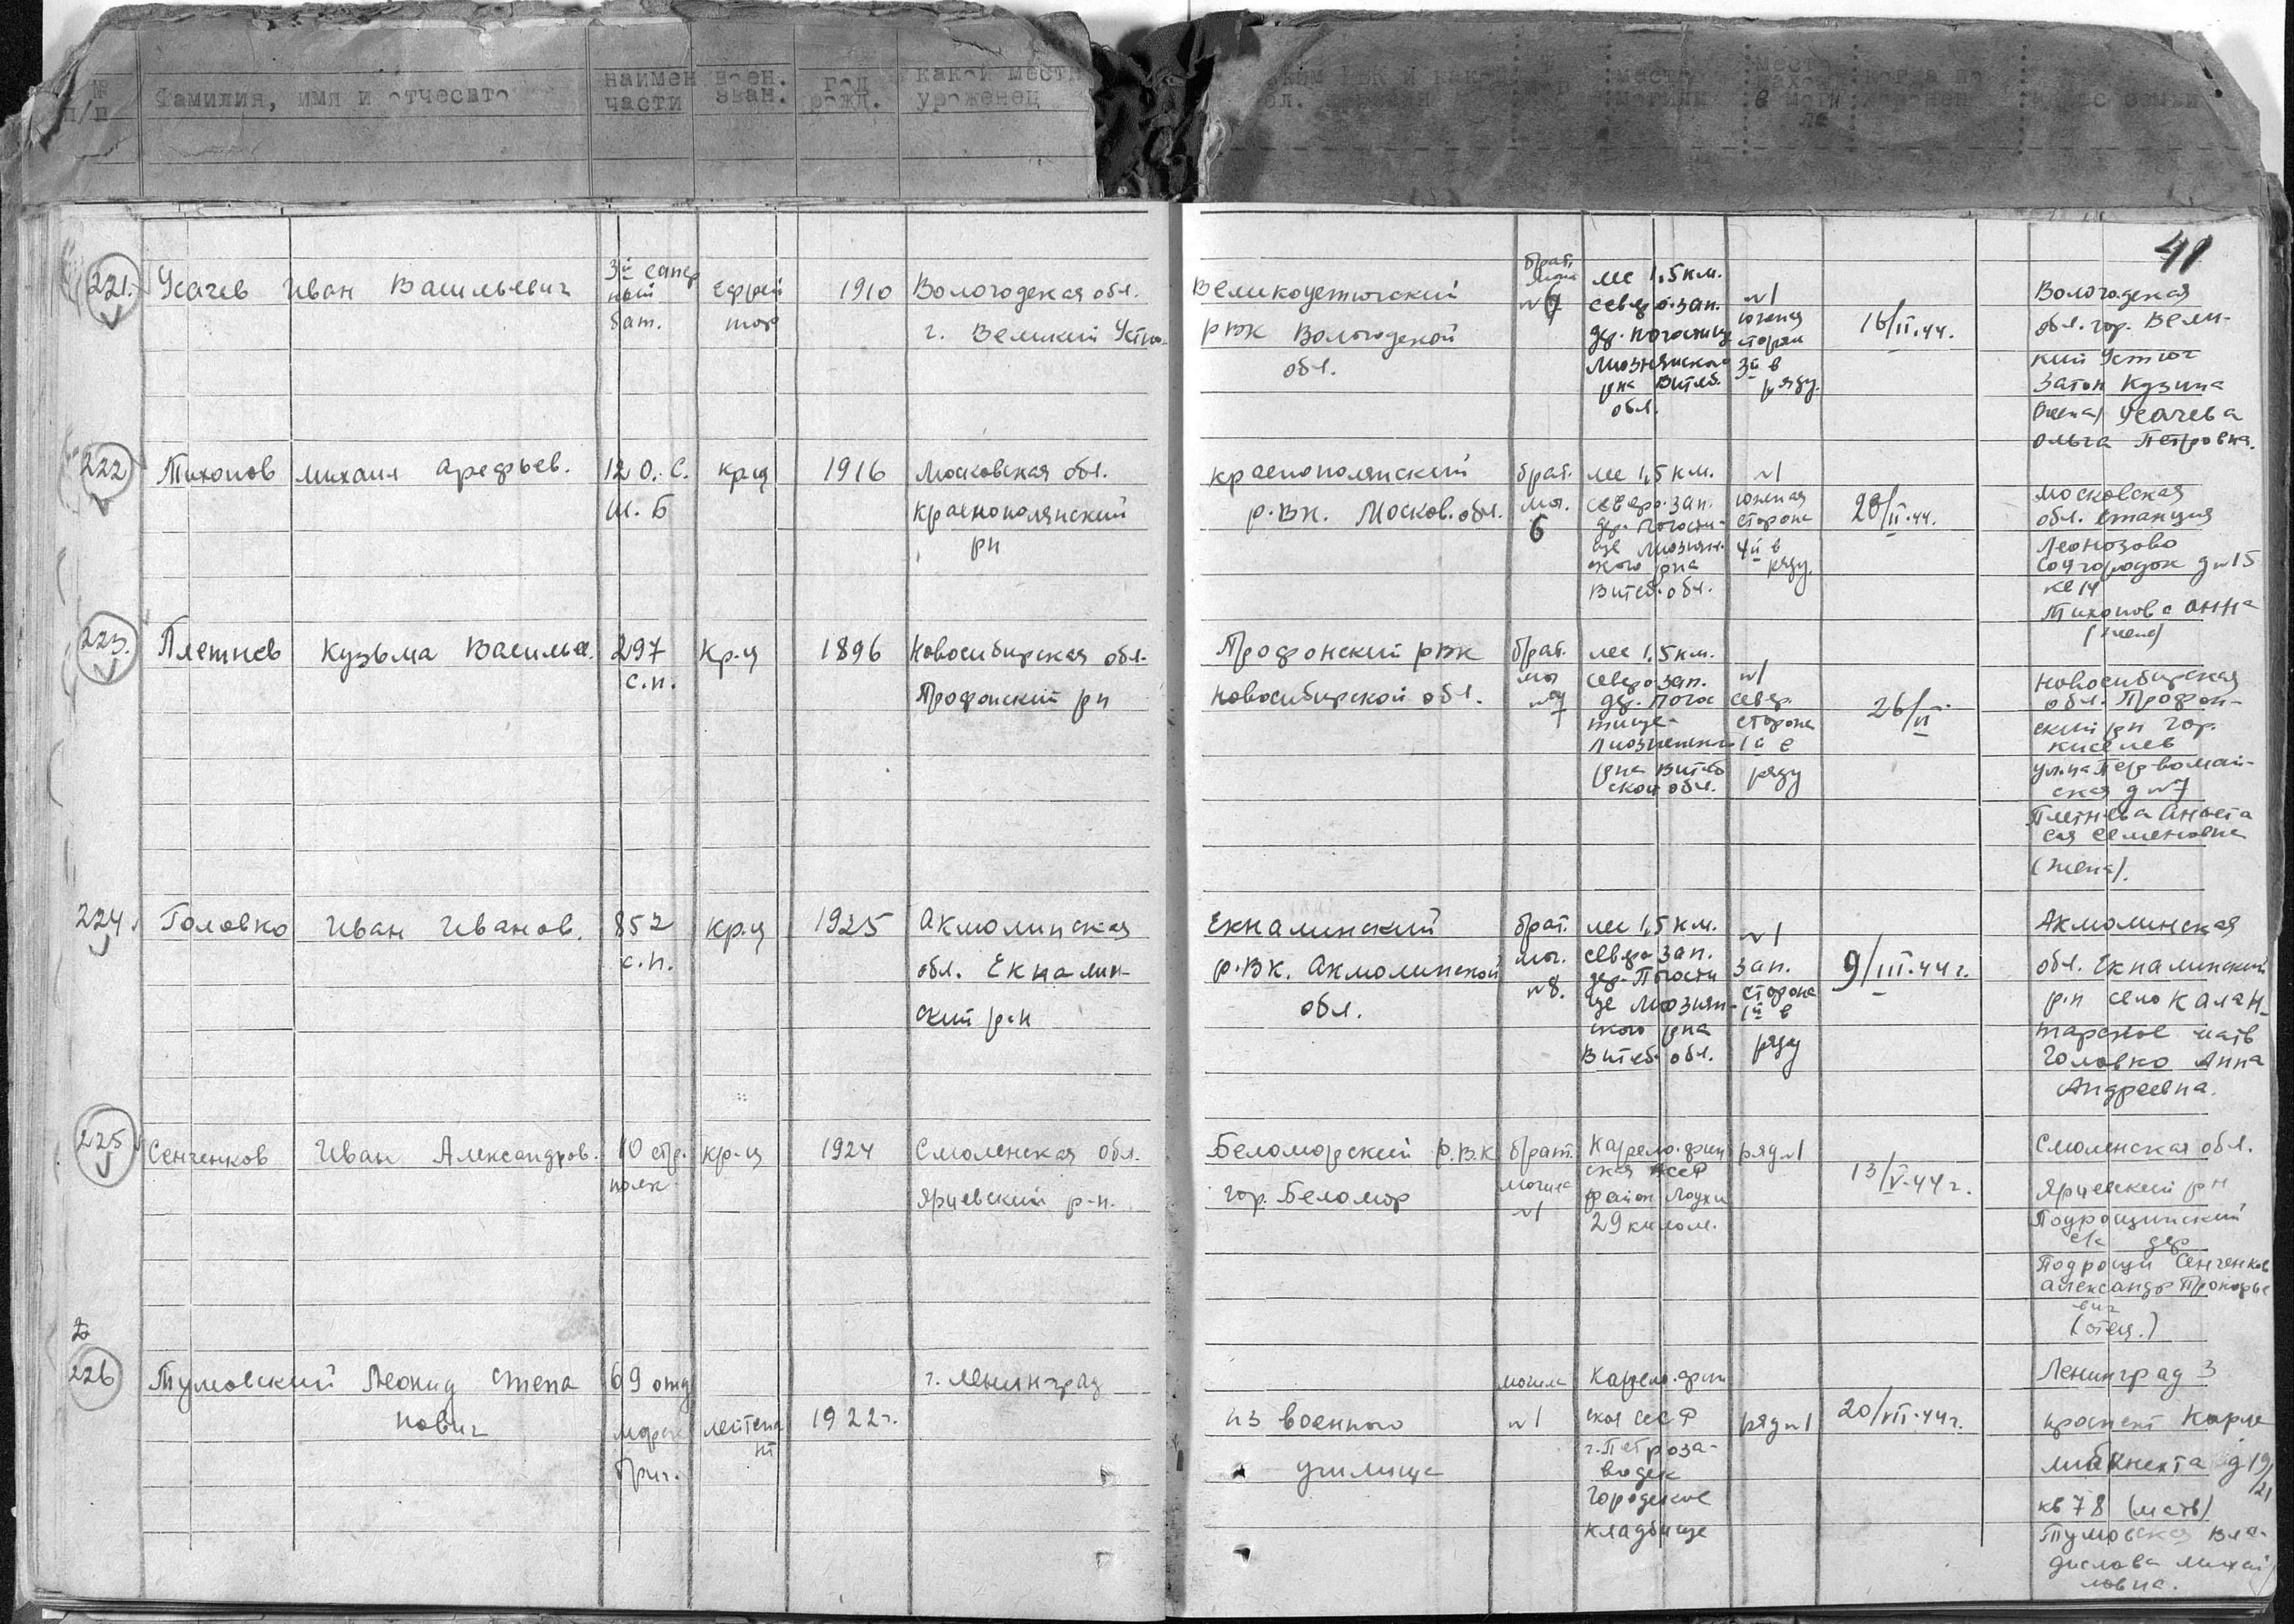 № п/п
Фамилия, имя и отчесвто
наимен части
воен. зван.
год рожд.
какой мест уроженец
место могилы
когда по хоронен
41
221. Усачев Иван Васильевич
3й сапер ный бат.
ефрей тор
1910
Вологодская обл.
г. Великий Устю-
Великоустюгский
РВК Вологодской
обл.
брат.
ле 1,5 км.
северо-зап.
дер. Погостище
Лиознянского
р-на Витеб.
обл.
№1
южная
сторон
3й в
ряду.
16/II.44.
Вологодская
обл. гор. Вели-
кий Устюг
Затон Кузина
(жена) Усачева
Ольга Петровна.
222 Тихонов Михаил Арефьев.
12 О. С.
Ш. Б
кр-ц
1916
Московская обл.
Краснополянский
рн
Краснополянский
р.вк. Москов. обл.
брат.
мог.
6
ле 1,5 км.
северо-зап.
дер. Погости-
ще Лиознян-
ского р-на
Витеб. обл.
№1
южная
сторона
4й в
ряду.
20/II.44.
Московская
обл. станция
Лионозово
Соцгородок д №15
кв 14
Тихонова Анна
(жена)
223. Плетнев Кузьма Василье.
297
с.п.
кр-ц
1896
Новосибирская обл.
Профонский рн
Профонский рвк
Новосибирской обл.
брат.
мог
№7
ле 1,5 км.
северо-зап.
дер. Погос
тище-
р-на Витеб
ской обл.
№1
север.
сторона
1й в
ряду
26/II.
Новосибирская
обл. Профон-
ский рн гор.
Киселев
ул-ца Первомай-
ская д №7
Плетнева Анаста
сия Семеновна
(жена).
224. Головко Иван Иванов.
852
с.п.
кр-ц
1925
Акмолинская
обл. Екпалин-
ский р-н
Екпалинский
р.вк. Акмолинской
обл.
брат.
мог.
№8.
ле 1,5 км.
северо-зап.
дер. Погости
ще Лиознян-
ского р-на
Витеб. обл.
№1
зап.
сторона
1й в
ряду
9/III.44г.
Акмолинская
обл. Екпалинский
р-н село Калан-
тарское мать
Головко Анна
Андреевна.
225 Сенченков Иван Александров.
10 стр.
полк
кр-ц
1924
Смоленская обл.
Ярцевский р-н.
Беломорский Р.В.К
гор. Беломор
брат.
могила
№1
Карело-фин
ская ССР
район Лоухи
29 килом.
ряд №1
13/V.44г.
Смоленская обл.
Ярцевский рн
Подрощинский
с/с дер
Подрощи Сенченков
Александр Прокофье
вич
(отец.)
226 Тумовский Леонид Степа
нович
69 отд
морск
бриг.
лейтена
нт
1922г.
г. Ленинград
из военного
училища
могила
№1
Карело-фин
ская ССР
г. Петроза-
водск
городское
кладбище
ряд №1
20/VII.44г.
Ленинград 3
проспект Карла
Либкнехта д 19/21
кв 78 (мать)
Тумовская Вла-
дислава Михай
ловна.